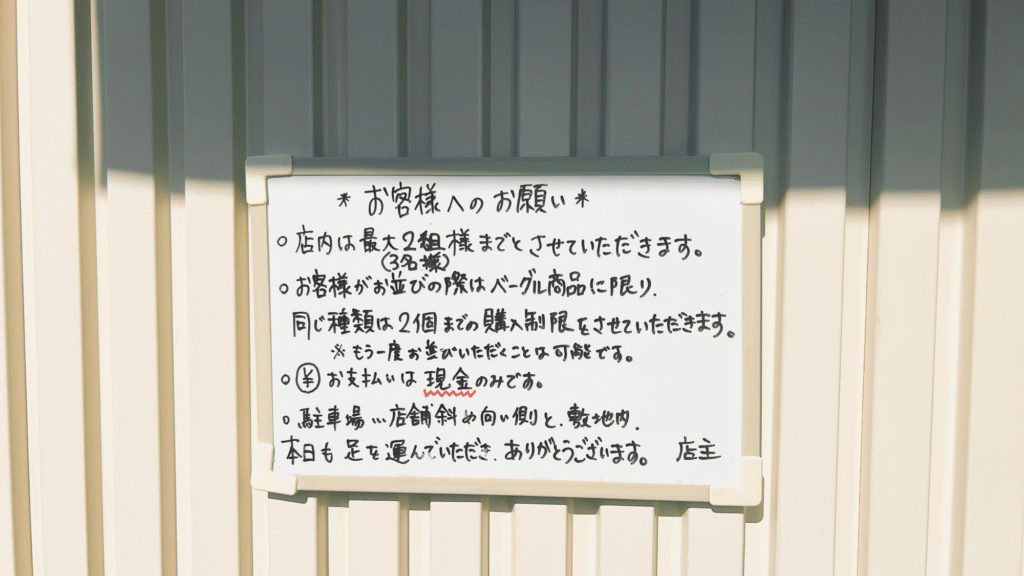 * お客様へのお願い *
○ 店内は最大2組様までとさせていただきます。
(3名様)
○ お客様がお並びの際はベーグル商品に限り、
同じ種類は2個までの購入制限をさせていただきます。
※ もう一度お並びいただくことは可能です。
○ ¥ お支払いは現金のみです。
○ 駐車場…店舗斜め向い側と、敷地内、
本日も足を運んでいただき、ありがとうございます。 店主